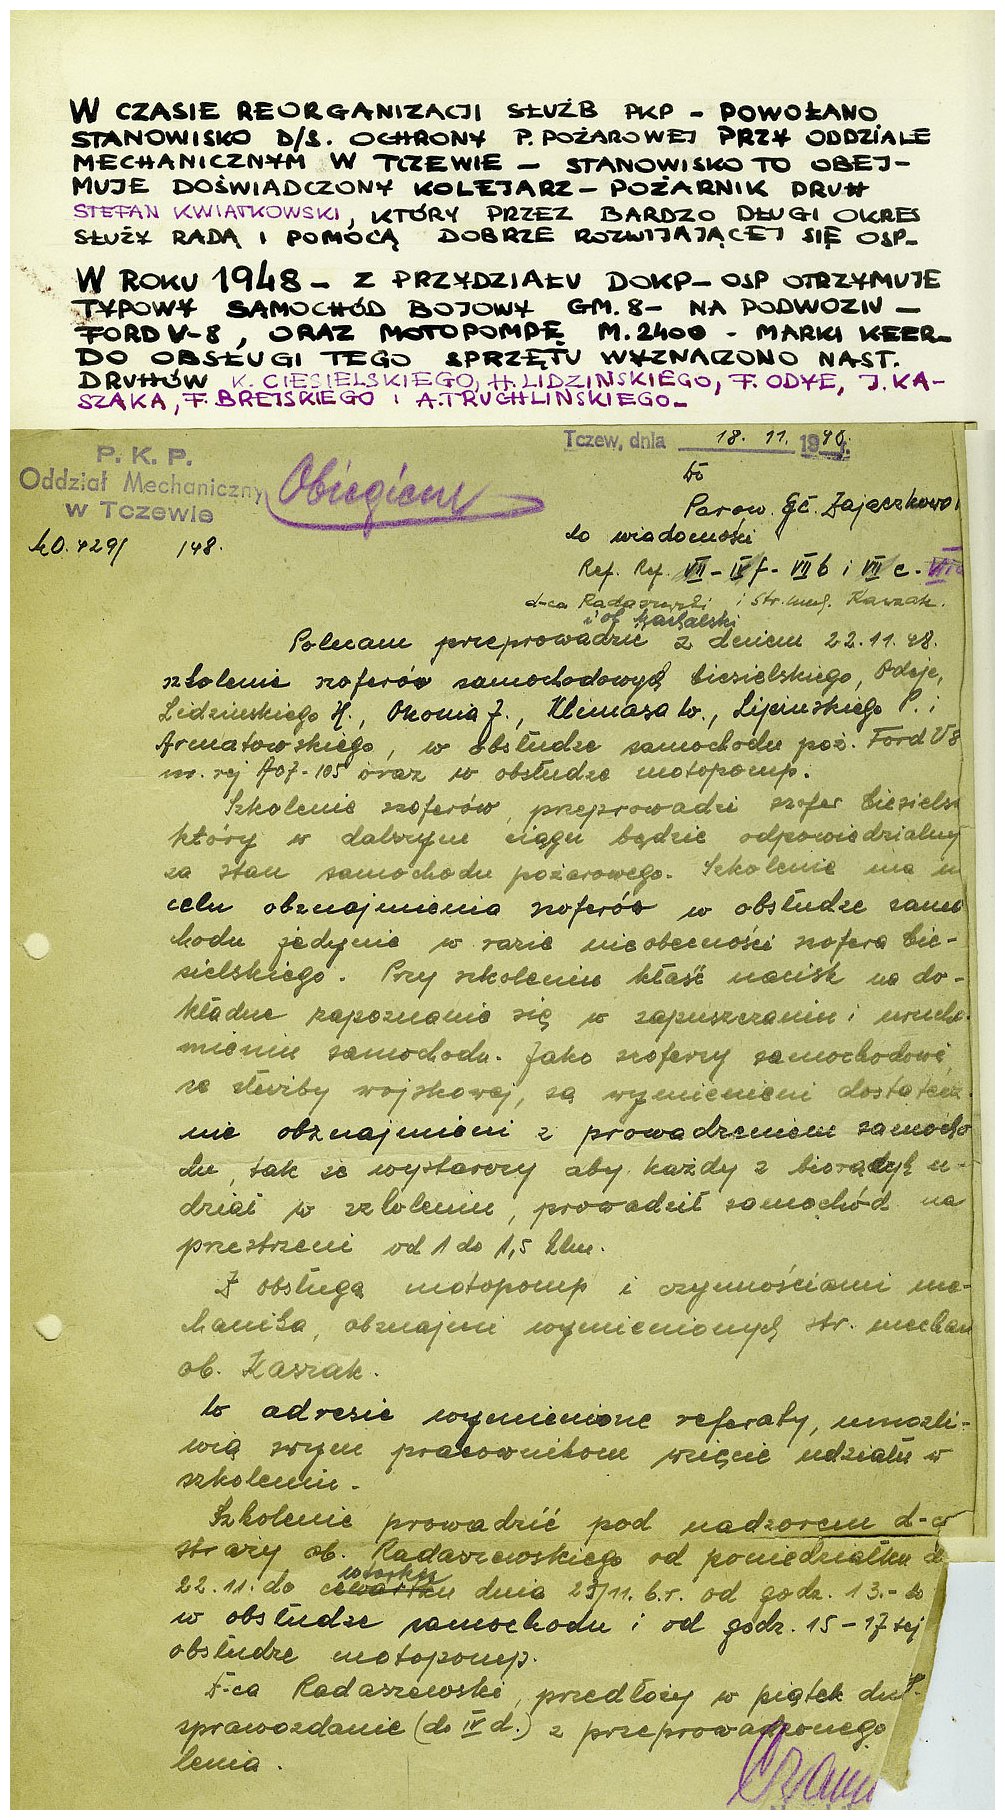 W CZASIE REORGANIZACJI SŁUŻB PKP – POWOŁANO
STANOWISKO D/S. OCHRONY P. POŻAROWEJ PRZY ODDZIALE
MECHANICZNYM W TCZEWIE – STANOWISKO TO OBEJ-
MUJE DOŚWIADCZONY KOLEJARZ – POŻARNIK DRUH
STEFAN KWIATKOWSKI, KTÓRY PRZEZ BARDZO DŁUGI OKRES
SŁUŻY RADĄ I POMOCĄ DOBRZE ROZWIJAJĄCEJ SIĘ OSP–
W ROKU 1948 – Z PRZYDZIAŁU DOKP – OSP OTRZYMUJE
TYPOWY SAMOCHÓD BOJOWY GM.8 – NA PODWOZIU –
FORD V-8, ORAZ MOTOPOMPĘ M.2400 - MARKI KEER–
DO OBSŁUGI TEGO SPRZĘTU WYZNACZONO NAST.
DRUHÓW K. CIESIELSKIEGO, H. LIDZINSKIEGO, F. ODYE, J. KA-
SZAKA, F. BREJSKIEGO I A. TRUCHLINSKIEGO–
Tczew, dnia 18. 11. 1948.
P. K. P.
Oddział Mechaniczny
w Tczewie
Obiegiem
Do
Parow. Gł. Zajączkowo
do wiadomości
Ref. Ref. VII - IV f - VII b i VII c -
d-ca Radaszewski i str. mech. Kaszak.
Polecam przeprowadzić z dniem 22.11.48.
szkolenie szoferów samochodowych Ciesielskiego, Odeje,
Lidzinskiego H., Okonia J., Klimasa W., Lipinskiego P. i
Armatowskiego, w obsłudze samochodu poż. Ford V8
nr. rej A07-105 oraz w obsłudze motopomp.
Szkolenie szoferów, przeprowadzi szofer Ciesielsk
który w dalszym ciągu będzie odpowiedzialny
za stan samochodu pożarowego. Szkolenie ma w
celu obznajmienia szoferów w obsłudze samo
chodu jedynie w razie nieobecności szofera Cie-
sielskiego. Przy szkoleniu kłaść nacisk na do-
kładne zapoznanie się w zapuszczaniu i urucho
mieniu samochodu. Jako szoferzy samochodowi
ze służby wojskowej, są wymienieni dostatecz
nie obznajmieni z prowadzeniem samocho
du, tak że wystarczy aby każdy z biorących u-
dział w szkoleniu, prowadził samochód na
przestrzeni od 1 do 1,5 klm.
Z obsługą motopomp i czynnościami me-
chanika, obznajmi wymienionych str. mechan
ob. Kaszak.
W adresie wymienione referaty, umożli-
wią swym pracownikom wzięcie udziału w
szkoleniu.
Szkolenie prowadzić pod nadzorem d-cy
straży ob. Radaszewskiego od poniedziałku d
wtorku
22.11. do czwartku dnia 23/11. b.r. od godz. 13.- do
w obsłudze samochodu i od godz. 15 – 17 tej
obsłudze motopomp.
D-ca Radaszewski, przedłoży w piątek dn.
sprawozdanie (do IV d.) z przeprowadzonego
lenia.